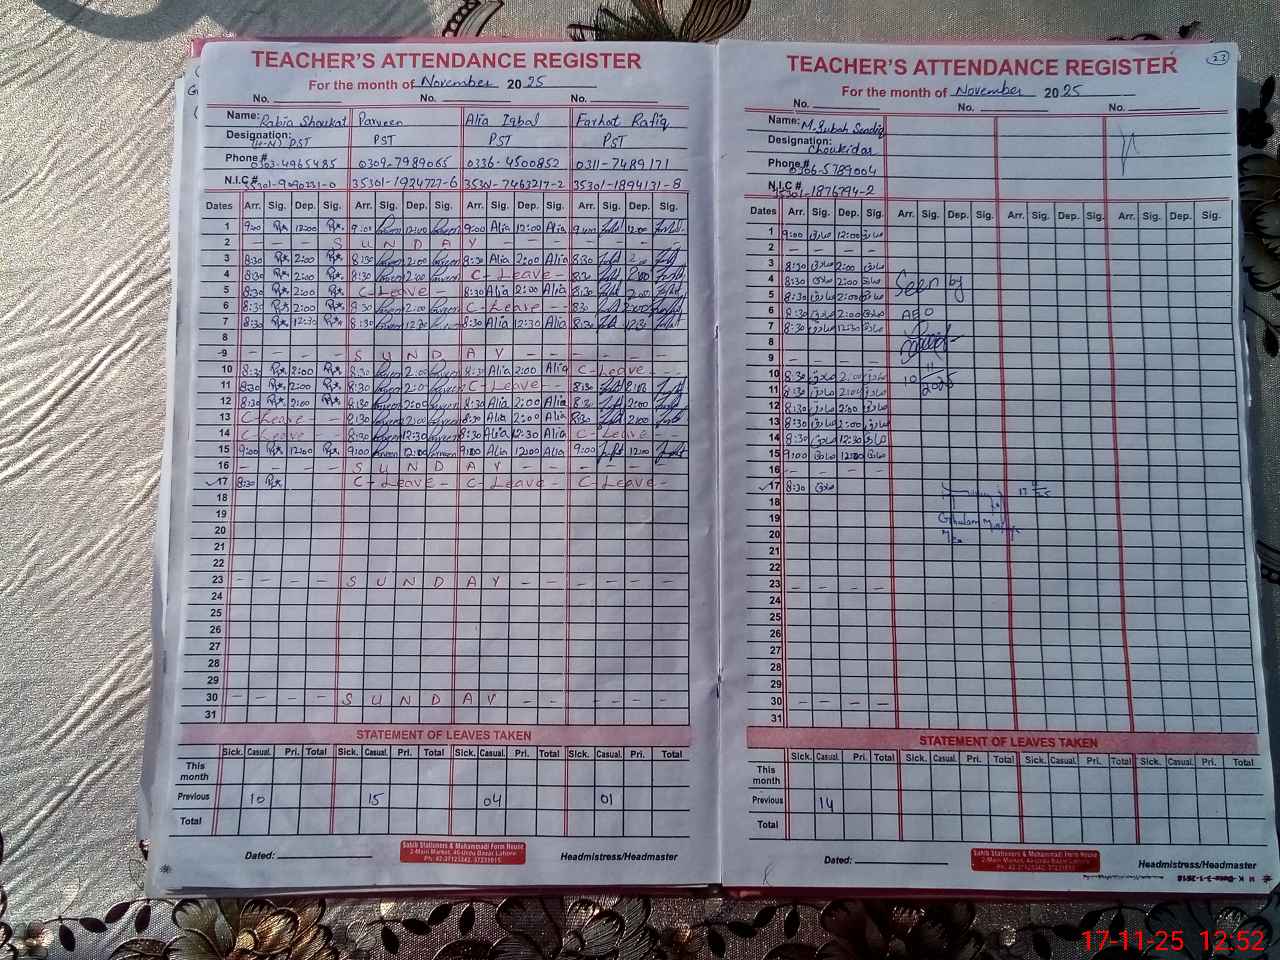 TEACHER'S ATTENDANCE REGISTER
For the month of November 20 25
No. No. No.
Name: Rabia Shoukat Parveen Alia Iqbal Farhat Rafiq
Designation: (H-M) PST PST PST PST
Phone # 0303-4965485 0309-7989065 0336-4500852 0311-7489171
N.I.C # 35301-9090231-0 35301-1924727-6 35301-7463217-2 35301-1894131-8
Dates Arr. Sig. Dep. Sig. Arr. Sig. Dep. Sig. Arr. Sig. Dep. Sig. Arr. Sig. Dep. Sig.
1 9:00 12:00 9:01 12:00 9:00 Alia 12:00 Alia 12:00
2 - - - - S U N D A Y - - - - -
3 8:30 2:00 8:30 2:00 8:30 Alia 2:00 Alia 8:30 2:00
4 8:30 2:00 8:30 2:00 C-Leave - 8:30 2:00
5 8:30 2:00 C-Leave - 8:30 Alia 2:00 Alia 8:30 2:00
6 8:30 2:00 8:30 2:00 C-Leave - 8:30 2:00
7 8:30 12:30 8:30 12:30 8:30 Alia 12:30 Alia 8:30 12:30
8
9 - - - - S U N D A Y - - - - -
10 8:30 2:00 8:30 2:00 8:30 Alia 2:00 Alia C-Leave -
11 8:30 2:00 8:30 2:00 C-Leave - 8:30 2:00
12 8:30 2:00 8:30 2:00 8:30 Alia 2:00 Alia 8:30 2:00
13 C-Leave - - 8:30 2:00 8:30 Alia 2:00 Alia 8:30 2:00
14 C-Leave - - 8:30 12:30 8:30 Alia 12:30 Alia C-Leave - -
15 9:00 12:00 9:00 12:00 9:00 Alia 12:00 Alia 9:00 12:00
16 - - - - S U N D A Y - - - - -
17 8:30 C-Leave - C-Leave - C-Leave -
18
19
20
21
22
23 - - - - - S U N D A Y - - - - -
24
25
26
27
28
29
30 - - - - - S U N D A Y - - - - -
31
STATEMENT OF LEAVES TAKEN
Sick. Casual. Pri. Total Sick. Casual. Pri. Total Sick. Casual. Pri. Total Sick. Casual. Pri. Total
This month
Previous 10 15 04 01
Total
Dated:
Sahib Stationers & Muhammadi Form House
2-Main Market, 40-Urdu Bazar Lahore.
Headmistress/Headmaster
23
TEACHER'S ATTENDANCE REGISTER
For the month of November 20 25
No. No. No.
Name:
Designation: Choukidar
Phone # 0306-5789004
N.I.C # 35301-1876794-2
Dates Arr. Sig. Dep. Sig. Arr. Sig. Dep. Sig. Arr. Sig. Dep. Sig. Arr. Sig. Dep. Sig.
1 9:00 صادق 12:00 صادق
2 - - - -
3 8:30 صادق 2:00 صادق
4 8:30 صادق 2:00 صادق Seen by
5 8:30 صادق 2:00 صادق
6 8:30 صادق 2:00 صادق AEO
7 8:30 صادق 12:30 صادق
8
9 - - - -
10 8:30 صادق 2:00 صادق 10 11 2025
11 8:30 صادق 2:00 صادق
12 8:30 صادق 2:00 صادق
13 8:30 صادق 2:00 صادق
14 8:30 صادق 12:30 صادق
15 9:00 صادق 12:00 صادق
16 - - - -
17 8:30 صادق
18
19 Ghulam
20
21
22
23 - - - -
24
25
26
27
28
29
30 - - - -
31
STATEMENT OF LEAVES TAKEN
Sick. Casual. Pri. Total Sick. Casual. Pri. Total Sick. Casual. Pri. Total Sick. Casual. Pri. Total
This month
Previous 14
Total
Dated:
Sahib Stationers & Muhammadi Form House
2-Main Market, 40-Urdu Bazar Lahore.
Headmistress/Headmaster
17-11-25 12:52